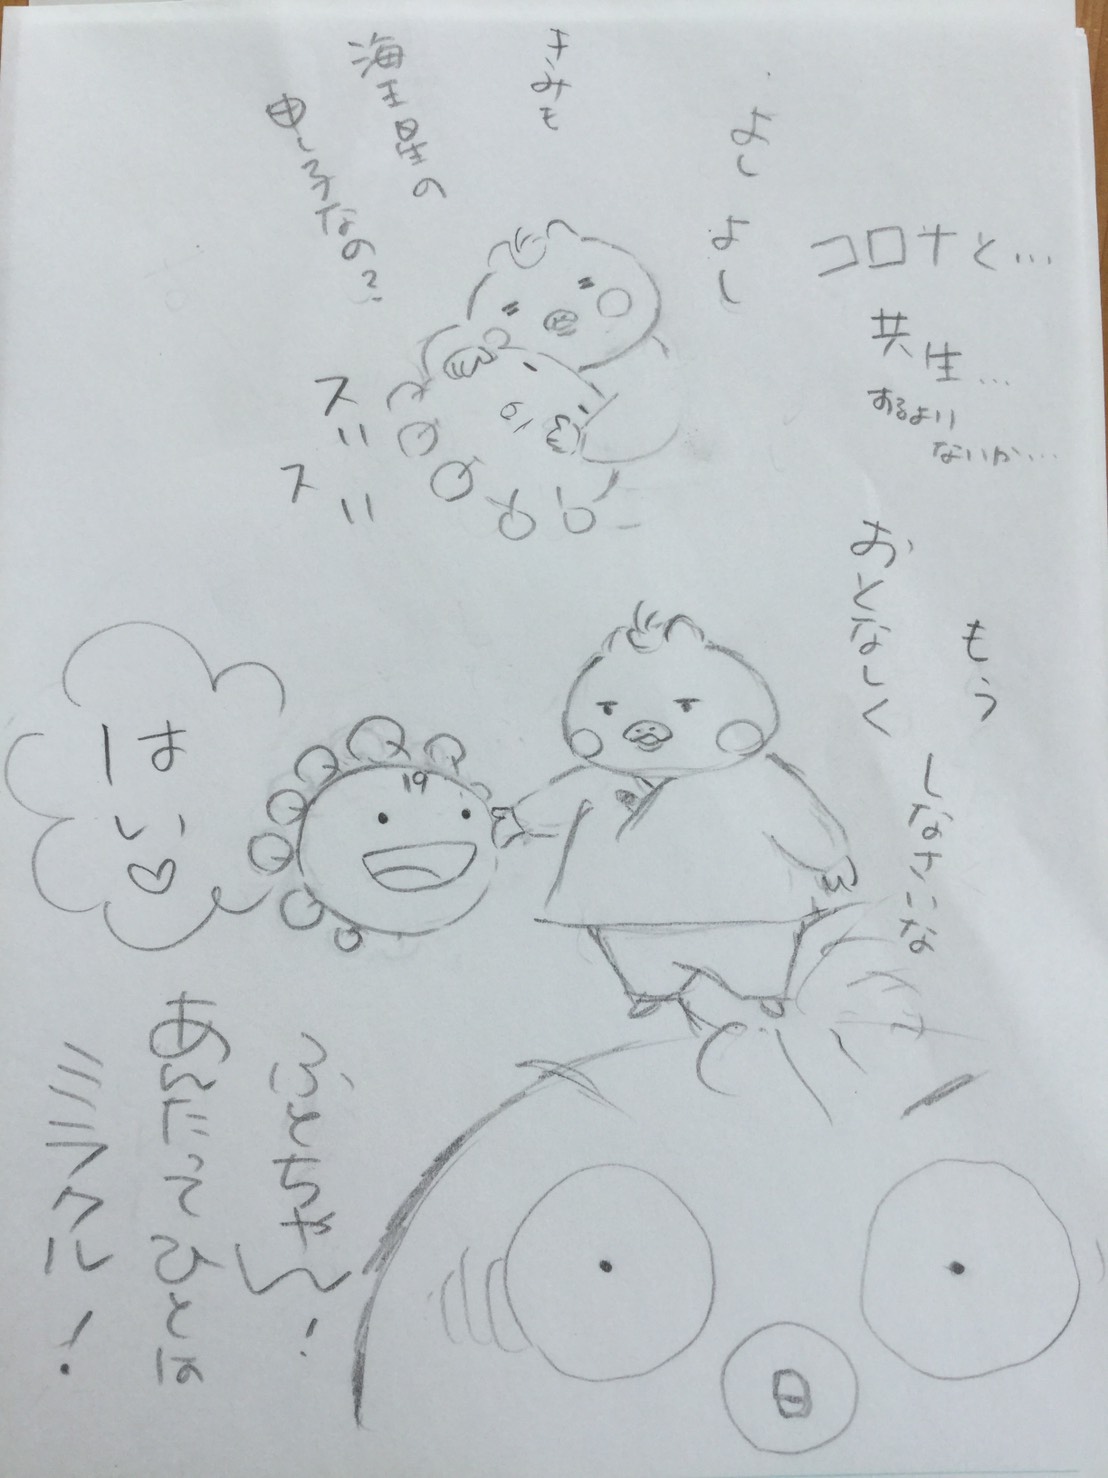 コロナと…
共生…
するより
ないか…
よし
よし
きみも
海王星の
申し子なの?
スリ
スリ
もう
おとなしく
しなさいな
19
はーい♡
ぶとちゃ〜ん!
あんたってひとは
ミラクル!